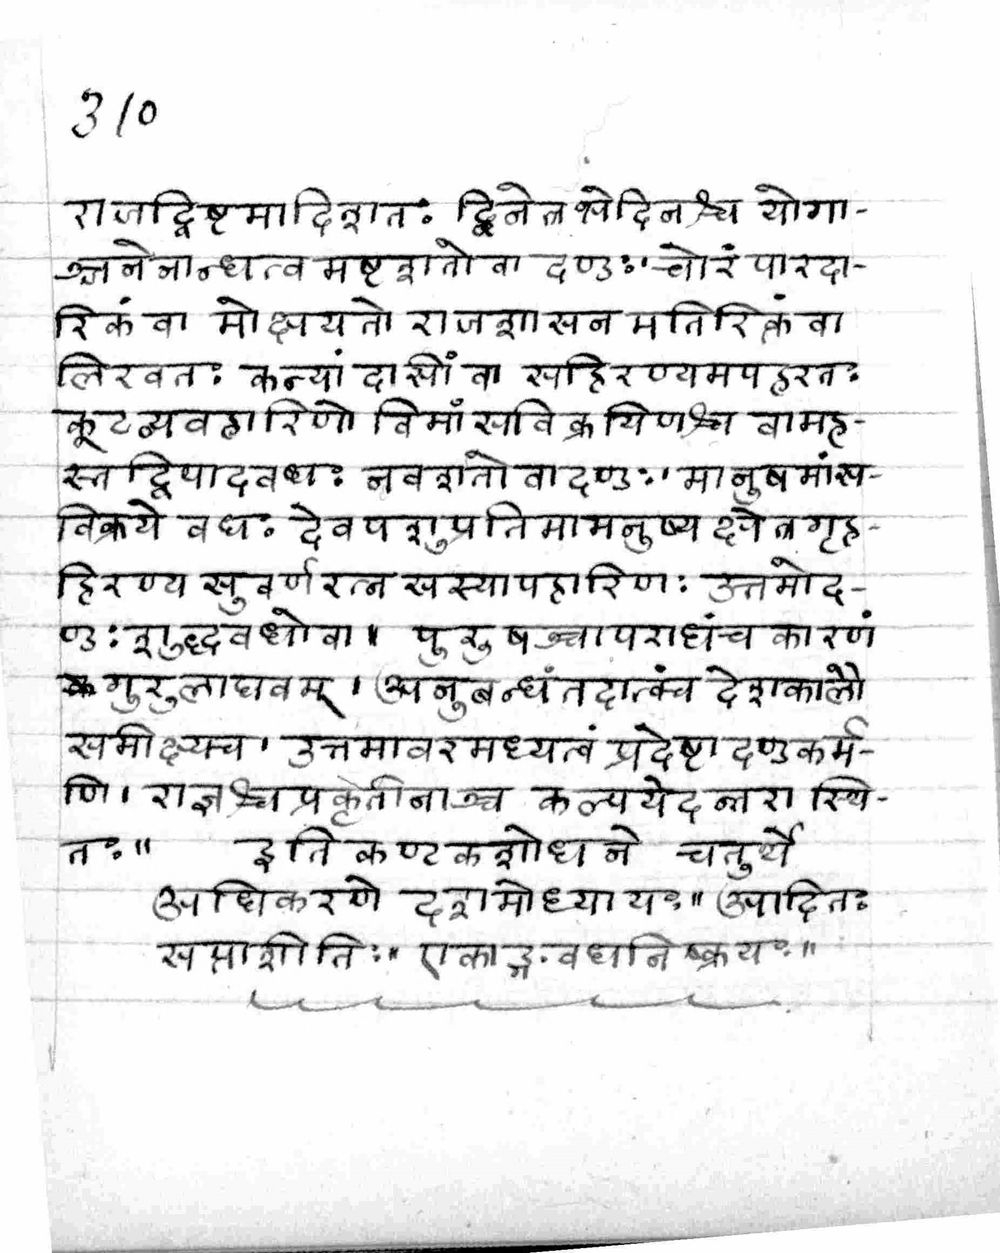 310
राजद्विष्टमादिशतः द्विनेत्रभेदिनश्च योगा-
ञ्जनेनान्धत्वमष्टशतो वा दण्डः। चोरं पारदा-
रिकं वा मोक्षयतो राजशासनमतिरिक्तं वा
लिखतः कन्यां दासीं वा सहिरण्यमपहरतः
कूटव्यवहारिणो विमांसविक्रयिणश्च वामह-
स्तद्विपादवधः नवशतो वा दण्डः। मानुषमांस-
विक्रये वधः देवपशुप्रतिमामनुष्यक्षेत्रगृह-
हिरण्यसुवर्णरत्नसस्यापहारिणः उत्तमोद-
ण्डः शुद्धवधोवा॥ पुरुषञ्चापराधंच कारणं
गुरुलाघवम्। अनुबन्धंतदात्वंच देशकालौ
समीक्ष्यच। उत्तमावरमध्यत्वं प्रदेष्टा दण्डकर्म-
णि। राज्ञश्चप्रकृतीनाञ्च कल्पयेदन्तरा स्थि-
तः॥ इति कण्टकशोधने चतुर्थे
अधिकरणे दशमोध्यायः॥ आदितः
सप्ताशीतिः॥ एकाङ्गवधनिष्क्रयः॥